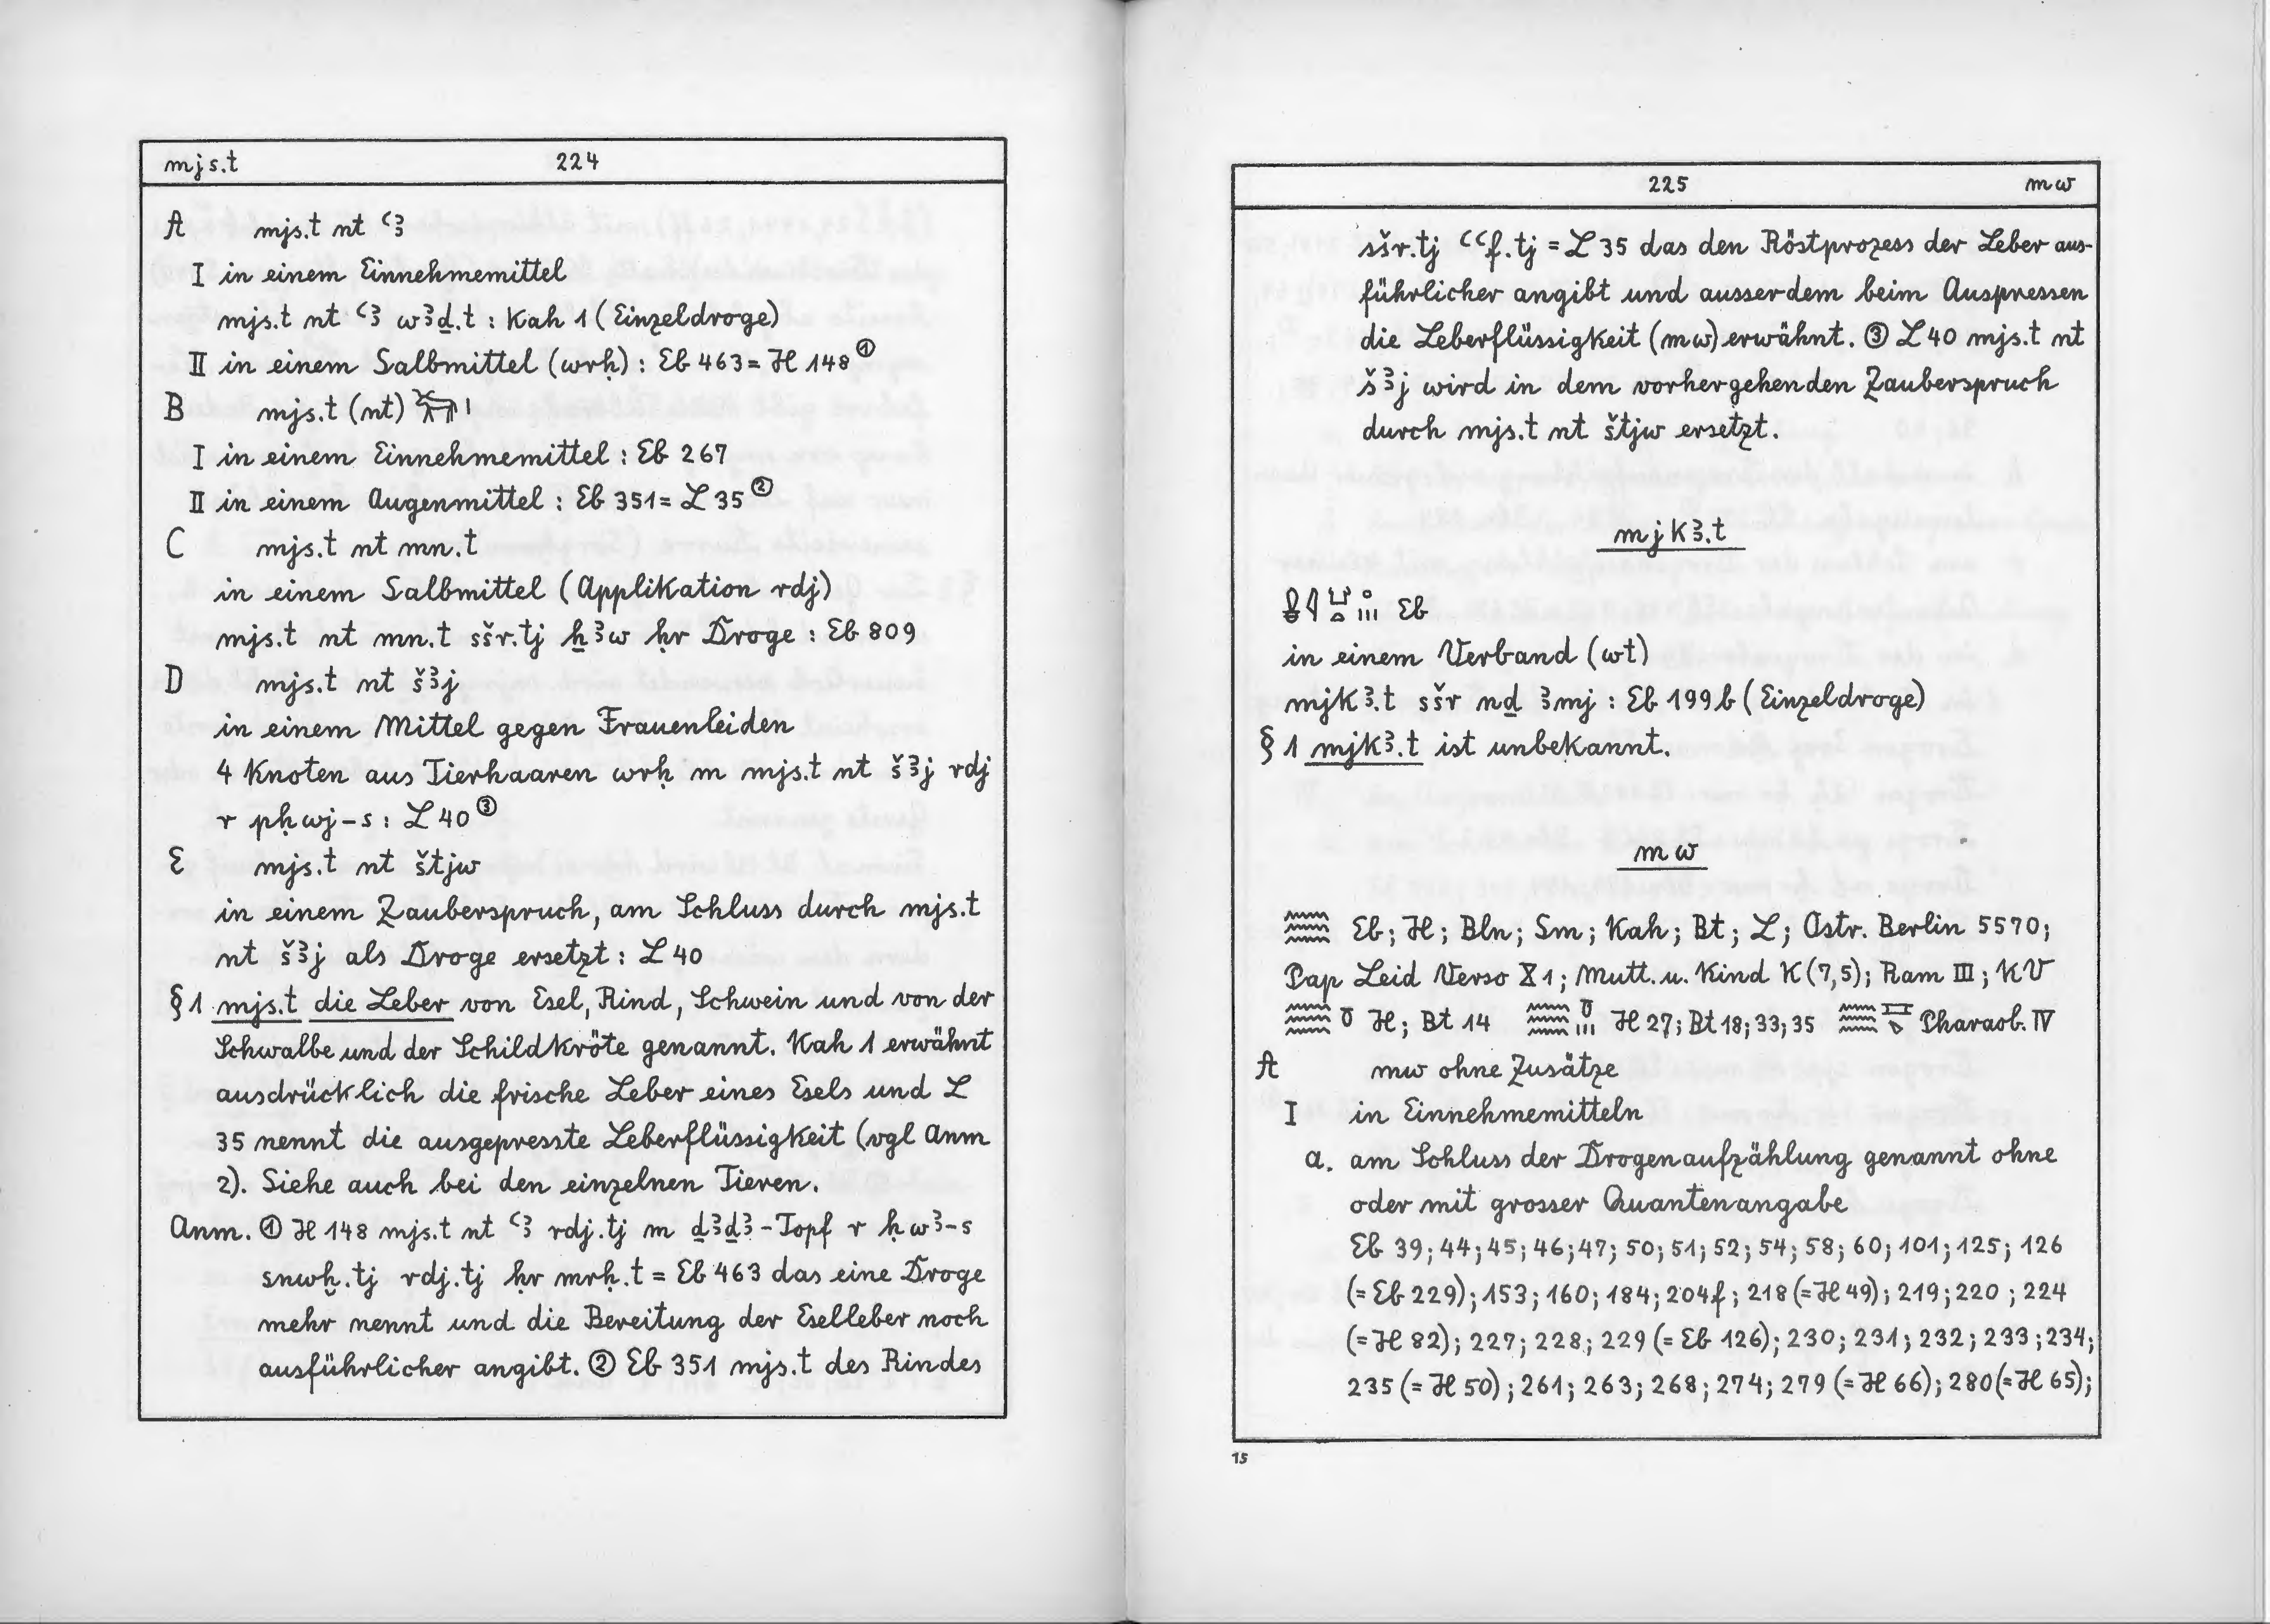 mjs.t 224
A mjs.t nt ꜥꜣ
I in einem Einnehmemittel
mjs.t nt ꜥꜣ wꜣḏ.t : Kah 1 (Einzeldroge)
II in einem Salbmittel (wrḥ) : Eb 463 = H 148 ①
B mjs.t (nt) 𓃒𓏤
I in einem Einnehmemittel : Eb 267
II in einem Augenmittel : Eb 351 = L 35 ②
C mjs.t nt mn.t
in einem Salbmittel (Applikation rdj)
mjs.t nt mn.t sšr.tj ẖꜣw ḥr Droge : Eb 809
D mjs.t nt šꜣj
in einem Mittel gegen Frauenleiden
4 Knoten aus Tierhaaren wrḥ m mjs.t nt šꜣj rdj
r pḥwj-s : L 40 ③
E mjs.t nt štjw
in einem Zauberspruch, am Schluss durch mjs.t
nt šꜣj als Droge ersetzt : L 40
§ 1 mjs.t die Leber von Esel, Rind, Schwein und von der
Schwalbe und der Schildkröte genannt. Kah 1 erwähnt
ausdrücklich die frische Leber eines Esels und L
35 nennt die ausgepresste Leberflüssigkeit (vgl Anm
2). Siehe auch bei den einzelnen Tieren.
Anm. ① H 148 mjs.t nt ꜥꜣ rdj.tj m ḏꜣḏꜣ-Topf r ḥwꜣ-s
snwḫ.tj rdj.tj ḥr mrḥ.t = Eb 463 das eine Droge
mehr nennt und die Bereitung der Eselleber noch
ausführlicher angibt. ② Eb 351 mjs.t des Rindes
225 mw
sšr.tj ꜥꜥf.tj = L 35 das den Röstprozess der Leber aus-
führlicher angibt und ausserdem beim Auspressen
die Leberflüssigkeit (mw) erwähnt. ③ L 40 mjs.t nt
šꜣj wird in dem vorhergehenden Zauberspruch
durch mjs.t nt štjw ersetzt.
mjkꜣ.t
Eb
in einem Verband (wt)
mjkꜣ.t sšr nḏ ꜣmj : Eb 199 b (Einzeldroge)
§ 1 mjkꜣ.t ist unbekannt.
mw
𓈗 Eb; H; Bln; Sm; Kah; Bt; L; Ostr. Berlin 5570;
Pap Leid Verso X 1; Mutt. u. Kind K (7,5); Ram III; KV
𓈗𓏌 H; Bt 14 𓈗𓏌𓏥 H 27; Bt 18; 33; 35 𓈗 Pharaob. IV
A mw ohne Zusätze
I in Einnehmemitteln
a. am Schluss der Drogenaufzählung genannt ohne
oder mit grosser Quantenangabe
Eb 39; 44; 45; 46; 47; 50; 51; 52; 54; 58; 60; 101; 125; 126
(= Eb 229); 153; 160; 184; 204f; 218 (= H 49); 219; 220; 224
(= H 82); 227; 228; 229 (= Eb 126); 230; 231; 232; 233; 234;
235 (= H 50); 261; 263; 268; 274; 279 (= H 66); 280 (= H 65);
15